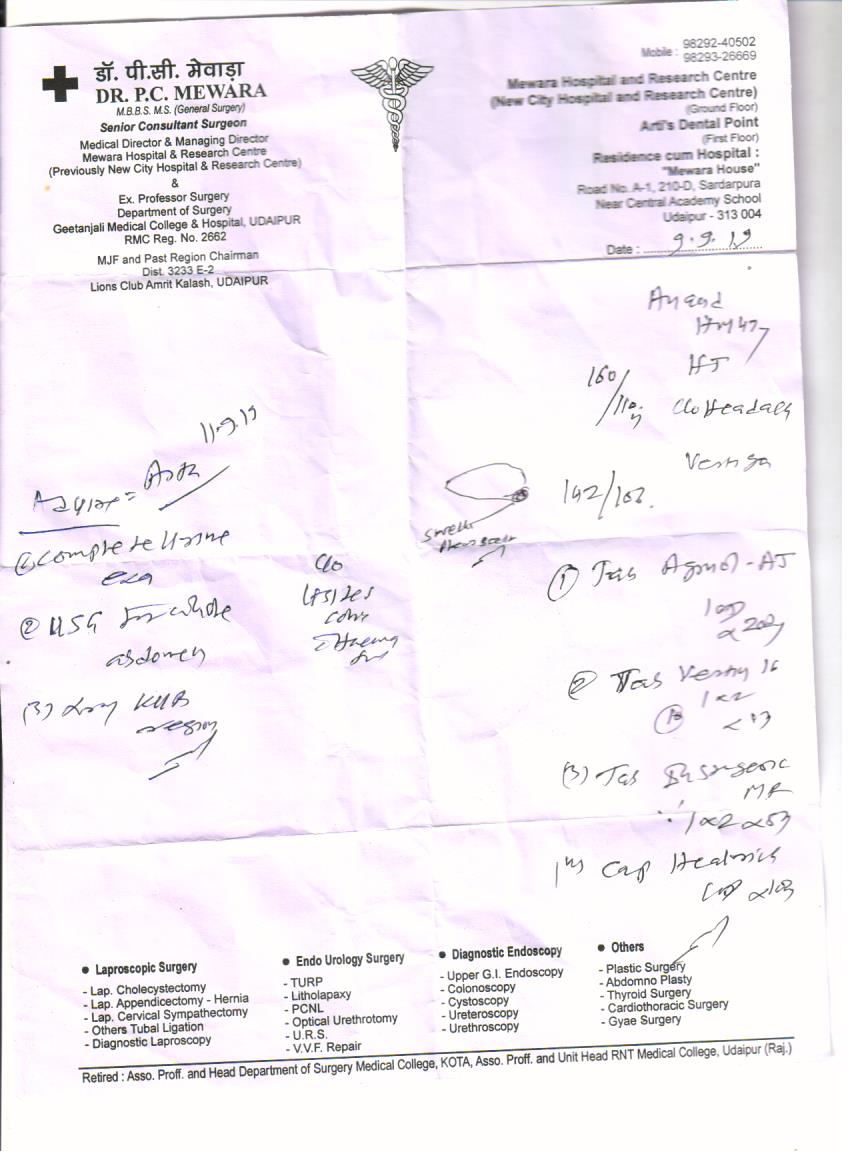 डॉ. पी.सी. मेवाड़ा
DR. P.C. MEWARA
M.B.B.S. M.S. (General Surgery)
Senior Consultant Surgeon
Medical Director & Managing Director
Mewara Hospital & Research Centre
(Previously New City Hospital & Research Centre)
&
Ex. Professor Surgery
Department of Surgery
Geetanjali Medical College & Hospital, UDAIPUR
RMC Reg. No. 2662
MJF and Past Region Chairman
Dist. 3233 E-2
Lions Club Amrit Kalash, UDAIPUR
Mobile : 98292-40502
98293-26669
Mewara Hospital and Research Centre
(New City Hospital and Research Centre)
(Ground Floor)
Arti's Dental Point
(First Floor)
Residence cum Hospital :
"Mewara House"
Road No. A-1, 210-D, Sardarpura
Near Central Academy School
Udaipur - 313 004
Date : 9.9.19
HT
160/110
C/o Headach
142/102.
11.9.19
(1) Complete Urine
exa
(2) USG for whole
abdomen
(3) KUB
region
C/o
(1) Tab
(2) Tab
1x2
(3) Tab
MR
Cap
● Laproscopic Surgery
- Lap. Cholecystectomy
- Lap. Appendicectomy - Hernia
- Lap. Cervical Sympathectomy
- Others Tubal Ligation
- Diagnostic Laproscopy
● Endo Urology Surgery
- TURP
- Litholapaxy
- PCNL
- Optical Urethrotomy
- U.R.S.
- V.V.F. Repair
● Diagnostic Endoscopy
- Upper G.I. Endoscopy
- Colonoscopy
- Cystoscopy
- Ureteroscopy
- Urethroscopy
● Others
- Plastic Surgery
- Abdomno Plasty
- Thyroid Surgery
- Cardiothoracic Surgery
- Gyae Surgery
Retired : Asso. Proff. and Head Department of Surgery Medical College, KOTA, Asso. Proff. and Unit Head RNT Medical College, Udaipur (Raj.)